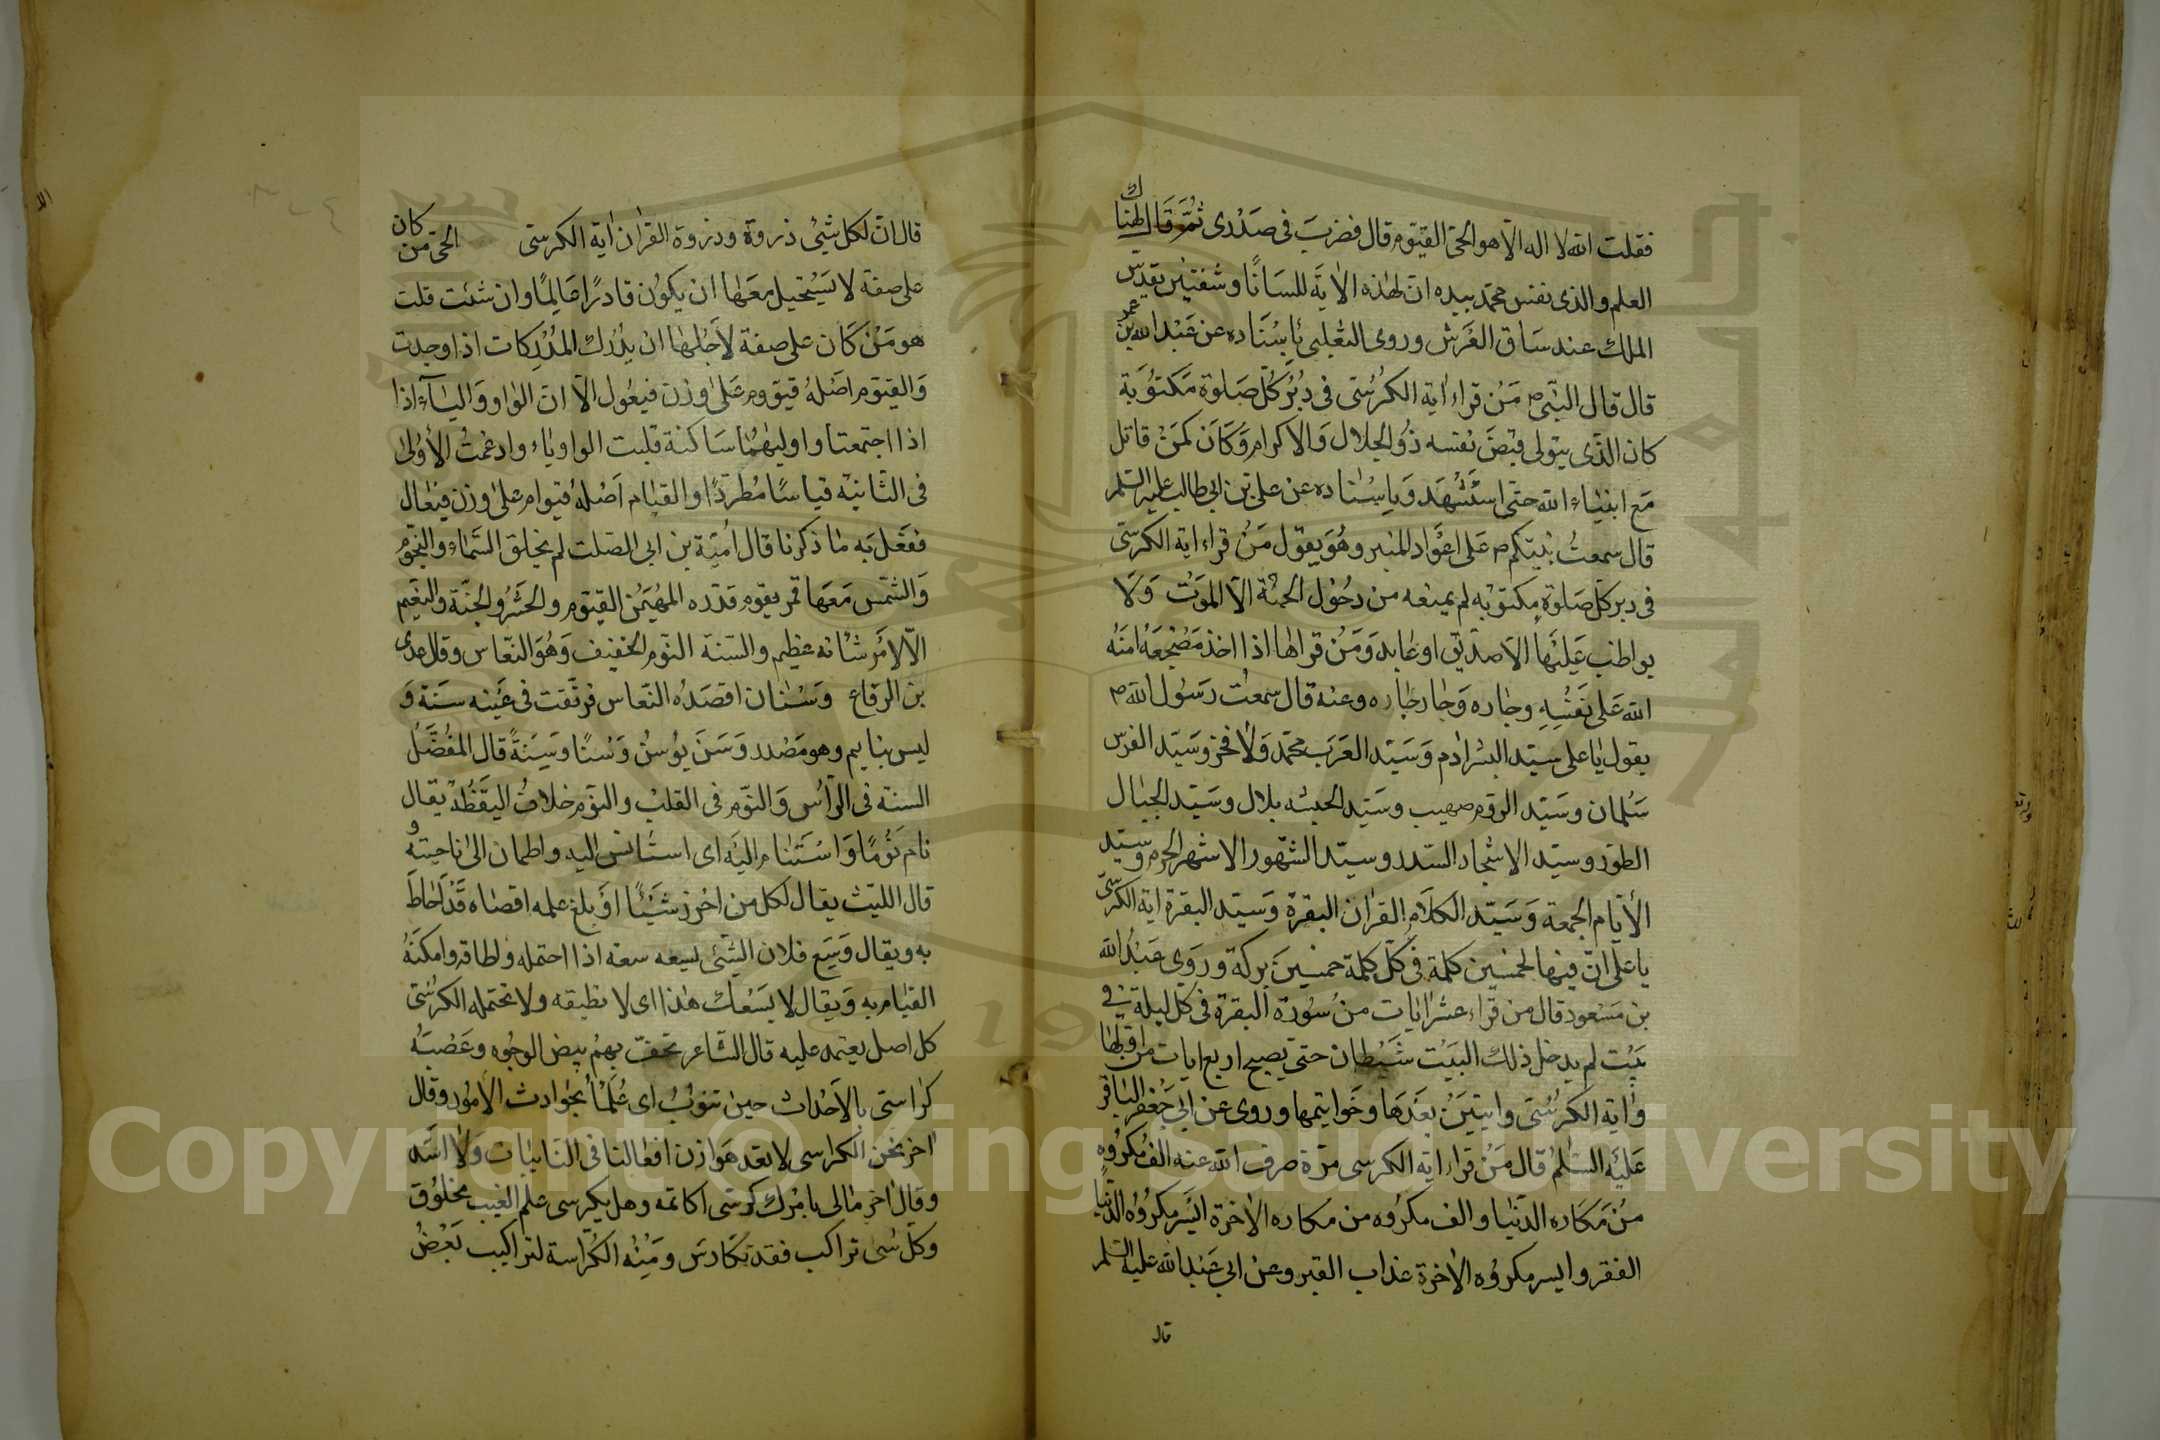 فقلت الله لا اله الا هو الحي القيوم قال فضرب في صدري ثم قال لهناك
العلم والذي نفس محمد بيده ان لهذه الاية للسانا وشفتين يقدس
الملك عند ساق العرش وروى الثعلبي باسناده عن عبد الله بن عمر
قال قال النبي ص من قراء اية الكرسي في دبر كل صلوة مكتوبة
كان الذي يتولى قبض نفسه ذو الجلال والاكرام وكان كمن قاتل
مع انبياء الله حتى استشهد وباسناده عن علي بن ابي طالب عليه السلم
قال سمعت نبيكم ص على اعواد المنبر وهو يقول من قراء اية الكرسي
في دبر كل صلوة مكتوبه لم يمنعه من دخول الجنة الا الموت ولا
يواظب عليها الا صديق او عابد ومن قراها اذا اخذ مضجعه امنه
الله على نفسه وجاره وجار جاره وعنه قال سمعت رسول الله ص
يقول يا على سيد البشر ادم وسيد العرب محمد ولا فخر وسيد الفرس
سلمان وسيد الروم صهيب وسيد الحبشه بلال وسيد الجبال
الطور وسيد الاشجار السدر وسيد الشهور الاشهر الحرم وسيد
الأيام الجمعة وسيد الكلام القران البقرة وسيد البقرة اية الكرسي
يا على ان فيها لخمسين كلمة في كل كلمة خمسين بركة وروى عبد الله
بن مسعود قال من قراء عشر ايات من سورة البقرة في كل ليلة في
بيت لم يدخل ذلك البيت شيطان حتى يصبح اربع ايات من اولها
واية الكرسي وايتين بعدها وخواتيمها وروى عن ابي جعفر الباقر
عليه السلم قال من قراء اية الكرسي مرة صرف الله عنه الف مكروه
من مكاره الدنيا والف مكروه من مكاره الاخرة ايسر مكروه الدنيا
الفقر وايسر مكروه الاخرة عذاب القبر وعن ابي عبد الله عليه السلم
قال
قال ان لكل شئ ذروة وذروة القران اية الكرسي الحي من كان
على صفة لا يستحيل معها ان يكون قادرا عالما وان شئت قلت
هو من كان على صفة لاجلها ان يدرك المدركات اذا وجدت
والقيوم اصله قيووم على وزن فيعول الا ان الواو والياء اذا
اذا اجتمعتا واوليهما ساكنة قلبت الواو ياء وادغمت الأولى
في الثانيه قياسا مطردا والقيام اصله قيوام على وزن فيعال
ففعل به ما ذكرنا قال امية بن ابي الصلت لم يخلق السماء والنجوم
والشمس معها قمر يقوم قدره المهيمن القيوم والحشر والجنة والنعيم
الا لامر شانه عظيم والسنة النوم الخفيف وهو النعاس وقال عدى
بن الرقاع وسنان اقصده النعاس فرنقت في عينه سنة و
ليس بنايم وهو مصدر وسن يوسن وسنا وسنة قال المفضل
السنة في الراس والنوم في القلب والنوم خلاف اليقظة يقال
نام نوما واستنام اليه اى استانس اليه واطمان الى ناحيته و
قال الليث يقال لكل من احرز شيئا او بلغ علمه اقصاه قد احاط
به ويقال وسع فلان الشئ يسعه سعة اذا احتمله واطاقه وامكنه
القيام به ويقال لا يسعك هذا اى لا تطيقه ولا تحتمله الكرسي
كل اصل يعتمد عليه قال الشاعر تحف بهم بيض الوجوه وعصبة
كراسي بالاحداث حين تنوب اى علما بحوادث الامور وقال
اخر نحن الكراسي لا تعد هوازن افعالنا في النايبات ولا اسد
وقال اخر مالى بامرك كرسي اكاتمه وهل يكرسي علم الغيب مخلوق
وكل شئ تراكب فقد تكارس ومنه الكراسة لتراكيب بعض
Copyright © King Saud University